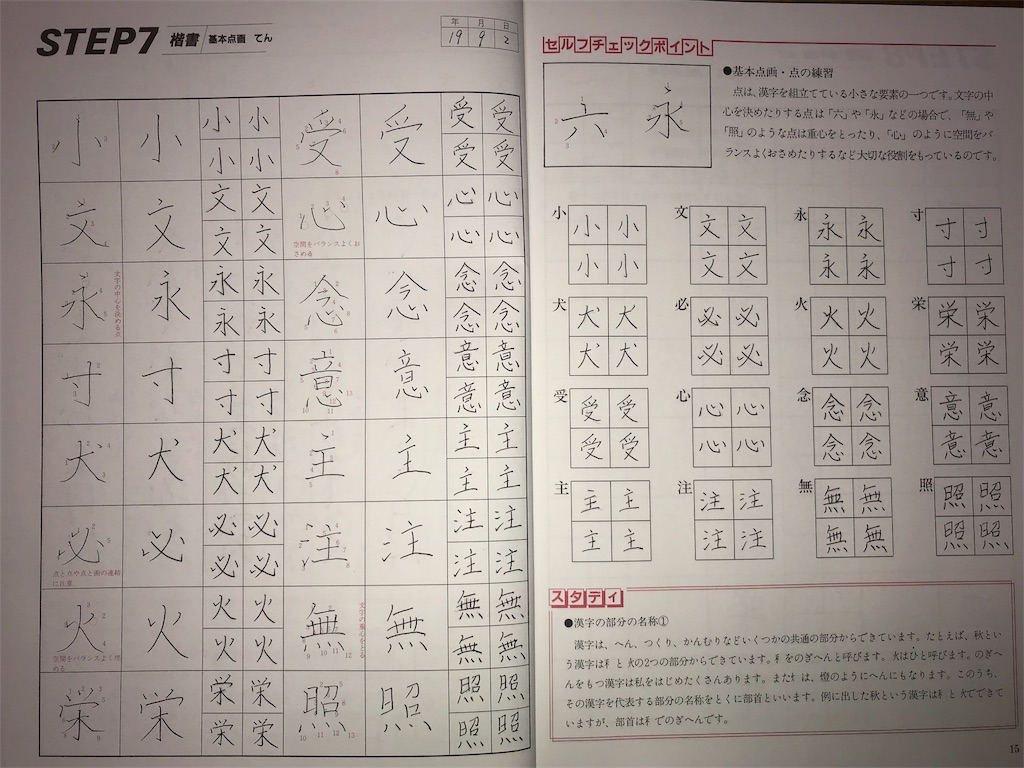 STEP7 楷書 基本点画 てん
年 月 日
19 9 2
小 小 小 小 受 受 受 受
小 小 受 受
文 文 文 文 心 心 心 心
文 文 心 心
空間をバランスよくおさめる
永 永 永 永 念 念 念 念
永 永 念 念
文字の中心を決める点
寸 寸 寸 寸 意 意 意 意
寸 寸 意 意
犬 犬 犬 犬 主 主 主 主
犬 犬 主 主
必 必 必 必 注 注 注 注
必 必 注 注
点と点や点と画の連結に注意
火 火 火 火 無 無 無 無
火 火 無 無
空間をバランスよく埋める
文字の重心をとる
栄 栄 栄 栄 照 照 照 照
栄 栄 照 照
セルフチェックポイント
六 永
●基本点画・点の練習
点は、漢字を組立てている小さな要素の一つです。文字の中
心を決めたりする点は「六」や「永」などの場合で、「無」や
「照」のような点は重心をとったり、「心」のように空間をバ
ランスよくおさめたりするなど大切な役割をもっているのです。
小 小 小 文 文 文 永 永 永 寸 寸 寸
小 小 文 文 永 永 寸 寸
犬 犬 犬 必 必 必 火 火 火 栄 栄 栄
犬 犬 必 必 火 火 栄 栄
受 受 受 心 心 心 念 念 念 意 意 意
受 受 心 心 念 念 意 意
主 主 主 注 注 注 無 無 無 照 照 照
主 主 注 注 無 無 照 照
スタディ
●漢字の部分の名称①
漢字は、へん、つくり、かんむりなどいくつかの共通の部分からできています。たとえば、秋とい
う漢字は禾と火の2つの部分からできています。禾をのぎへんと呼びます。火はひと呼びます。のぎへ
んをもつ漢字は私をはじめたくさんあります。また火は、燈のようにへんにもなります。このうち、
その漢字を代表する部分の名称をとくに部首といいます。例に出した秋という漢字は禾と火でできて
いますが、部首は禾でのぎへんです。
15